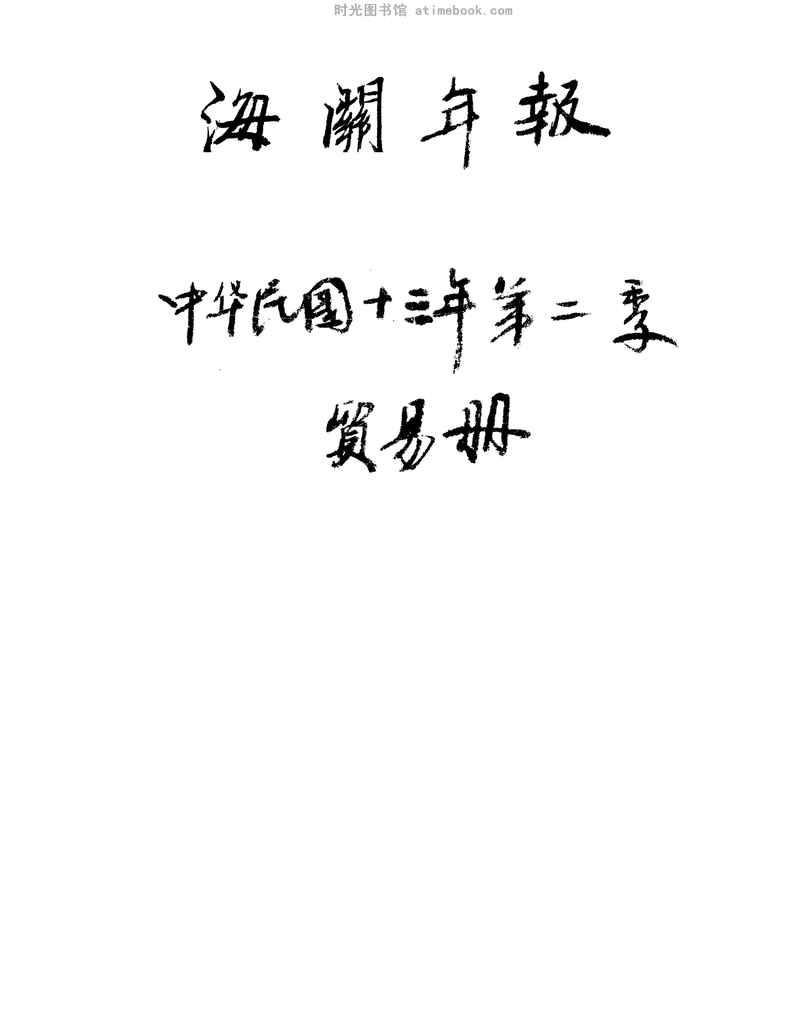 时光图书馆 atimebook.com
海關年報
中华民國十三年第二季
貿易册